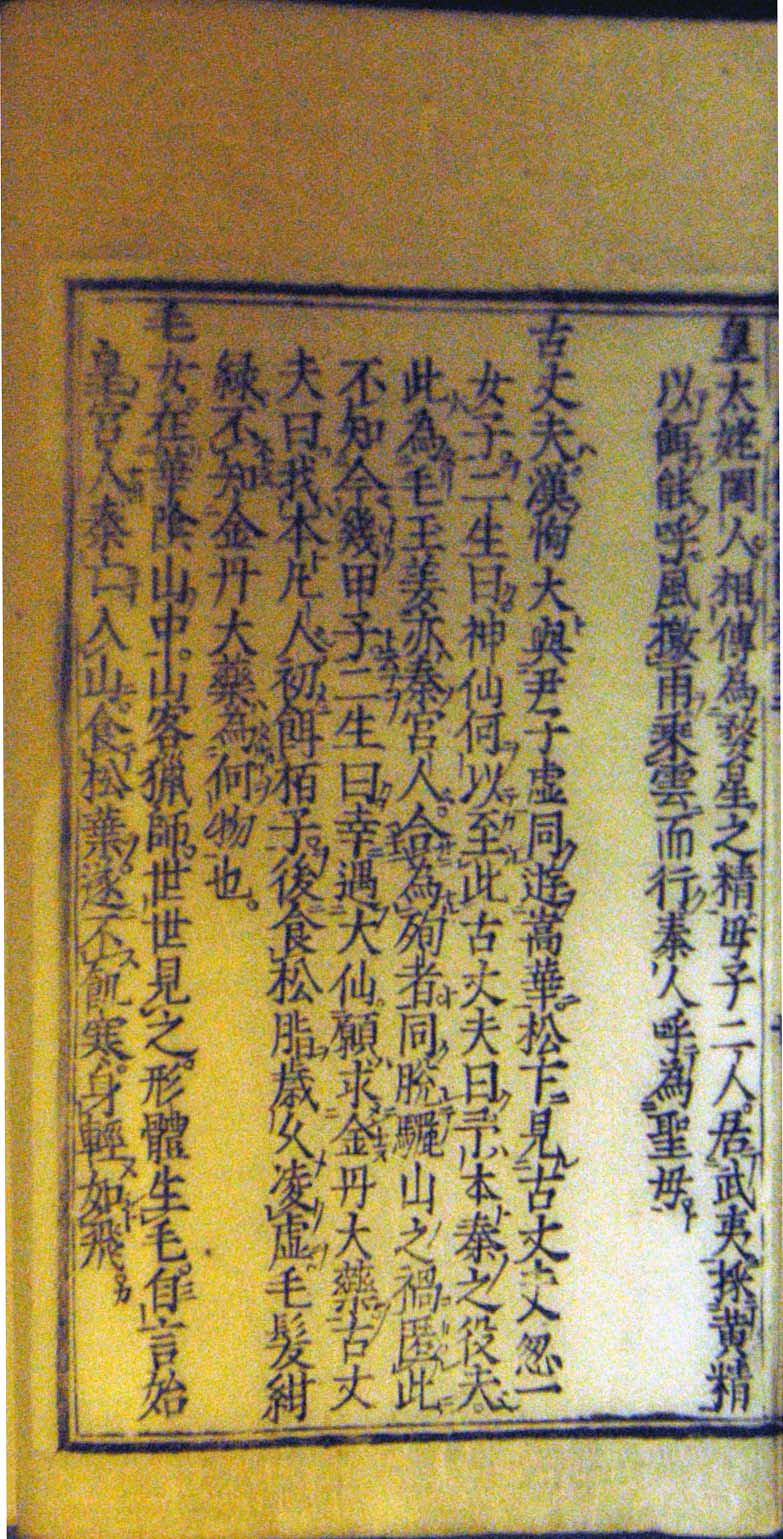 皇太姥閩人相傳為婺星之精母子二人居武夷採黄精
以餌能呼風檄雨乘雲而行秦人呼為聖母
古丈夫漢恂大與尹子虚同遊嵩華松下見古丈夫忽一
女子二生曰神仙何以至此古丈夫曰予本秦之役夫
此為毛玉姜亦秦宮人合為殉者同脱驪山之禍匿此
不知今幾甲子二生曰幸遇大仙願求金丹大藥古丈
夫曰我本凡人初餌栢子後食松脂歳久凌虚毛髮紺
緑不知金丹大藥為何物也。
毛女在華陰山中山客獵師世世見之形體生毛自言始
皇宮人秦亡入山食松葉遂不飢寒身輕如飛